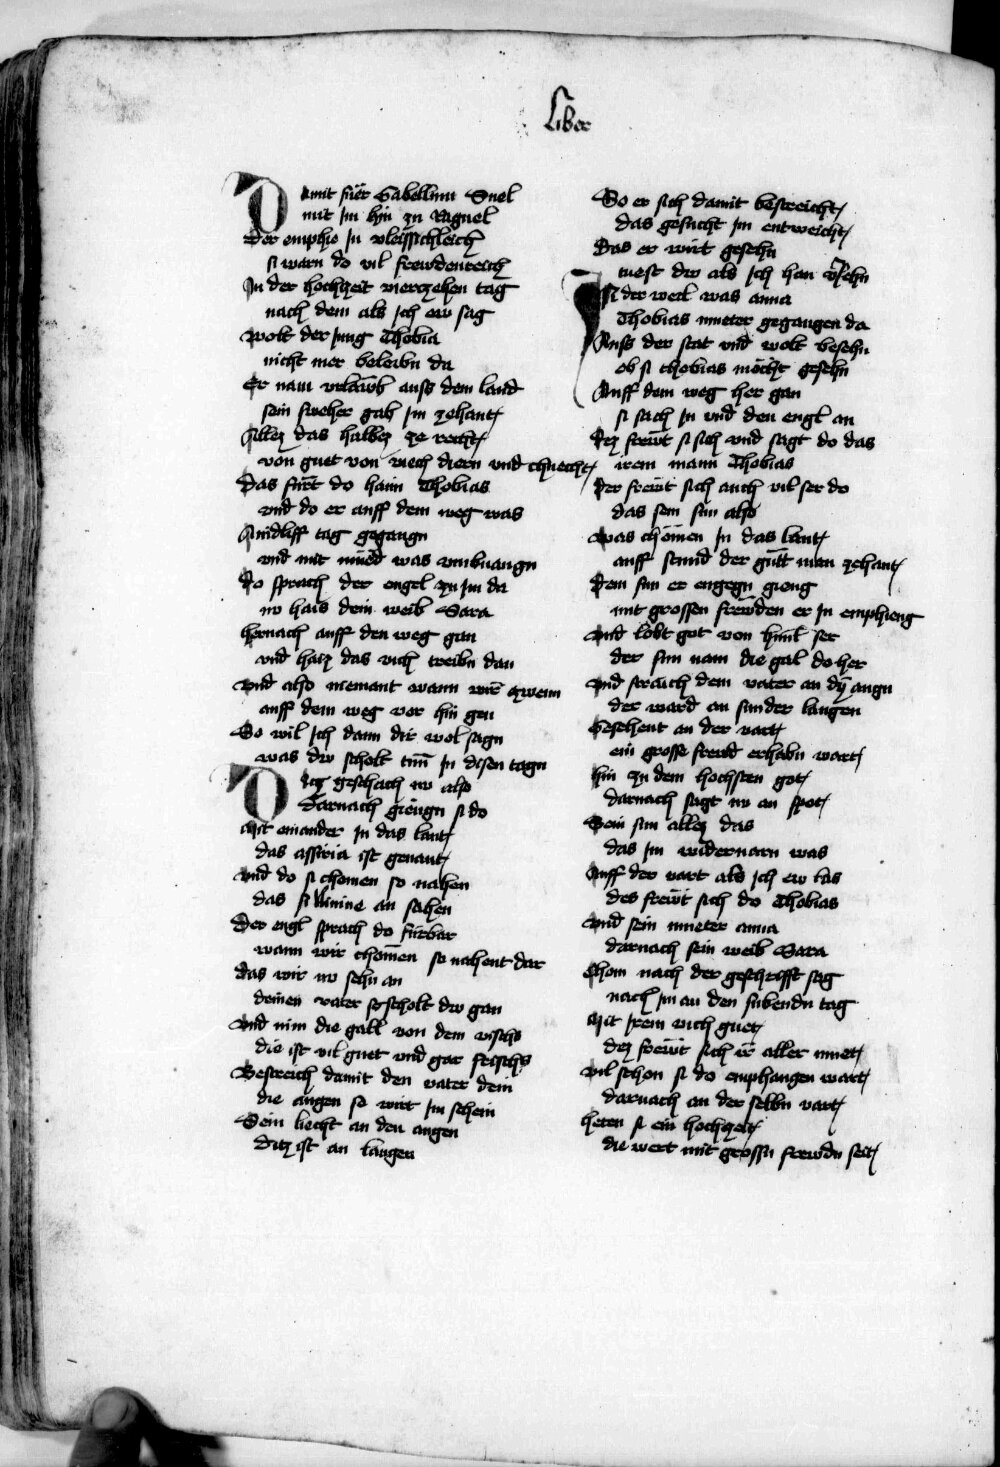 Liber
Damit fuer Gabellum Snel
mit im hin zu Raguel
Der emphie in vleissichleich
si warn do vil frewdenreich
In der hochzeit vierzehen tag
nach dem als ich ew sag
Wolt der jung Thobia
nicht mer beleibn da
Er nam vrlawb auss dem land
sein sweher gab im zehant
Allez das halbez ze recht
von guet von viech diern vnd chnecht
Das fuert do haim Thobias
vnd do er auff dem weg was
Aindliff tag gegangn
vnd mit mued was vmbuangn
Do sprach der engel zu im da
nv hais dein weib Sara
Hernach auff den weg gan
vnd haiz das vich treibn dan
Vnd also niemant wann wir zwenn
auff dem weg vor hin gen
So wil ich dann dir wol sagn
was dw scholt tun in disen tagn
Ditz geschach nv also
darnach giengn si do
Mit einander in das lant
das assiria ist genant
Vnd do si chomen so nahen
das si Ninive an sahen
Der engl sprach do fürbar
wann wir chomen so nahent dar
Das wir nv sehn an
deinen vater so scholt dw gan
Vnd nim die gall von dem vischs
die ist vil guet vnd gar frischs
Bestreich damit den vater dein
die augen so wirt im schein
Sein liecht an den augen
ditz ist an laugen
So er sich damit bestreicht
das gesucht im entweicht
Das er wirt gesehn
tuest dw als ich han veriehn
In der weil was anna
Thobias mueter gegangen da
Auss der stat vnd wolt besehn
ob si thobias möcht gesehn
Auff dem weg her gan
si sach in vnd den engl an
Dez frewt si sich vnd sagt do das
irem mann Thobias
Der frewt sich auch vil ser do
das sein sun also
Was chömen in das lant
auff stuend der guett man zehant
Dem sun er engegn gieng
mit grossen frewden er in emphieng
Vnd lobt got von himl ser
der sun nam die gal do her
Vnd straich dem vater an dy augn
der ward an sunder laugen
Gesehent an der vart
ein grosse frewd erhabn wart
Hin zu dem hochsten got
darnach sagt nv an spot
Sein sun allez das
das im widervarn was
Auff der vart als ich ew las
des frewt sich do Thobias
Vnd sein mueter anna
darnach sein weib Sara
Chom nach der geschrifft sag
nach im an den sibendn tag
Mit irem vich guet
dez frewt sich ir aller muet
Vil schon si do emphangen wart
darnach an der selbn vart
Heten si ein hochzeit
die wert mit grossn frewdn seit